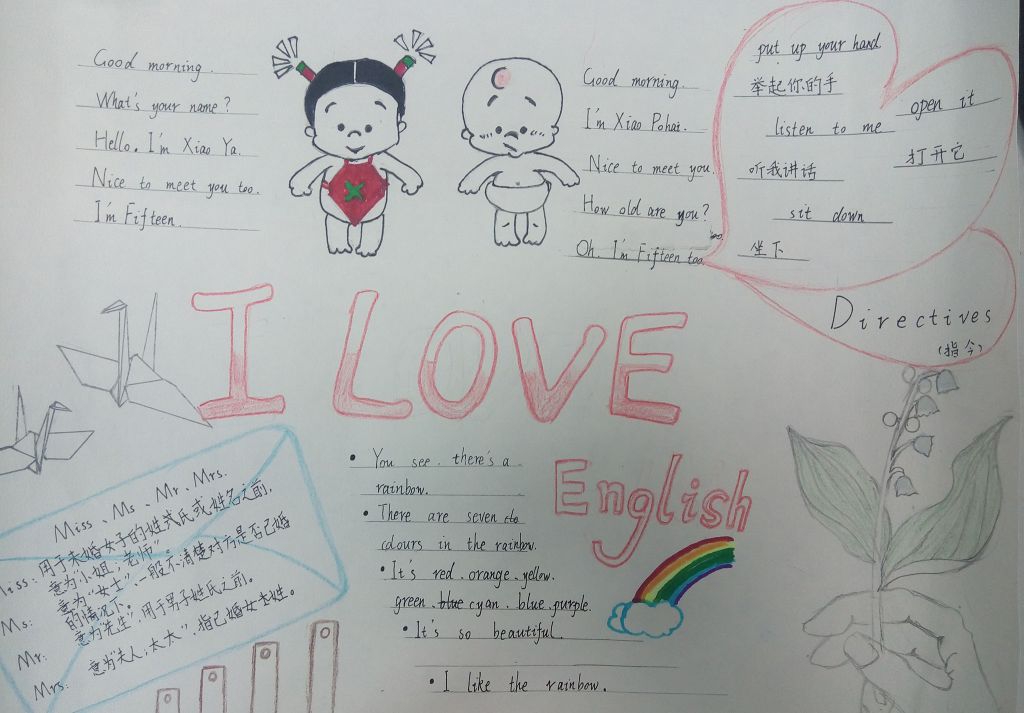 Good morning.
What's your name?
Hello. I'm Xiao Ya.
Nice to meet you too.
I'm Fifteen.
Good morning.
I'm Xiao Pohai.
Nice to meet you.
How old are you?
Oh. I'm Fifteen too.
put up your hand
举起你的手
open it
listen to me
打开它
听我讲话
sit down
坐下
Directives
(指令)
I LOVE
English
• You see. there's a
rainbow.
• There are seven
colours in the rainbow.
• It's red.orange.yellow.
green.blue cyan.blue.purple.
• It's so beautiful.
• I like the rainbow.
Miss、Ms、Mr、Mrs.
Miss: 用于未婚女子的姓氏或姓名之前,
意为"小姐,老师"。
Ms: 意为"女士",一般不清楚对方是否已婚
的情况下。
Mr: 意为"先生",用于男子姓氏之前。
Mrs: 意为"夫人,太太",指已婚女士姓。